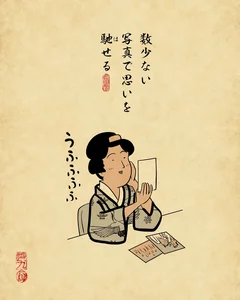 数少ない
写真で思いを
馳せる
は
うふふふふ